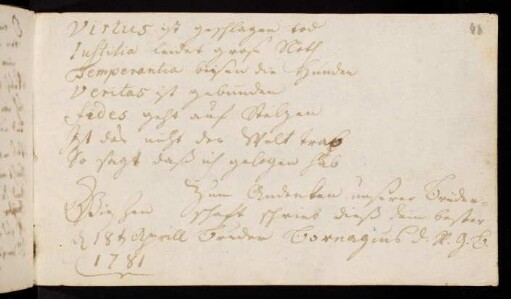 Virtus ist geschlagen tod
Justitia leidet grose Noth
Temperantia bissen die Hunden
Veritas ist gebunden
fides geht auf Stelzen
Ist das nicht der Welt trab
So sagt daß ich gelogen hab
Zum Andenken unserer Brüder-
Giessen schaft schrieb dieß dein bester
d 18t Aprill Bruder Bornagius d. R. G. B.
1781